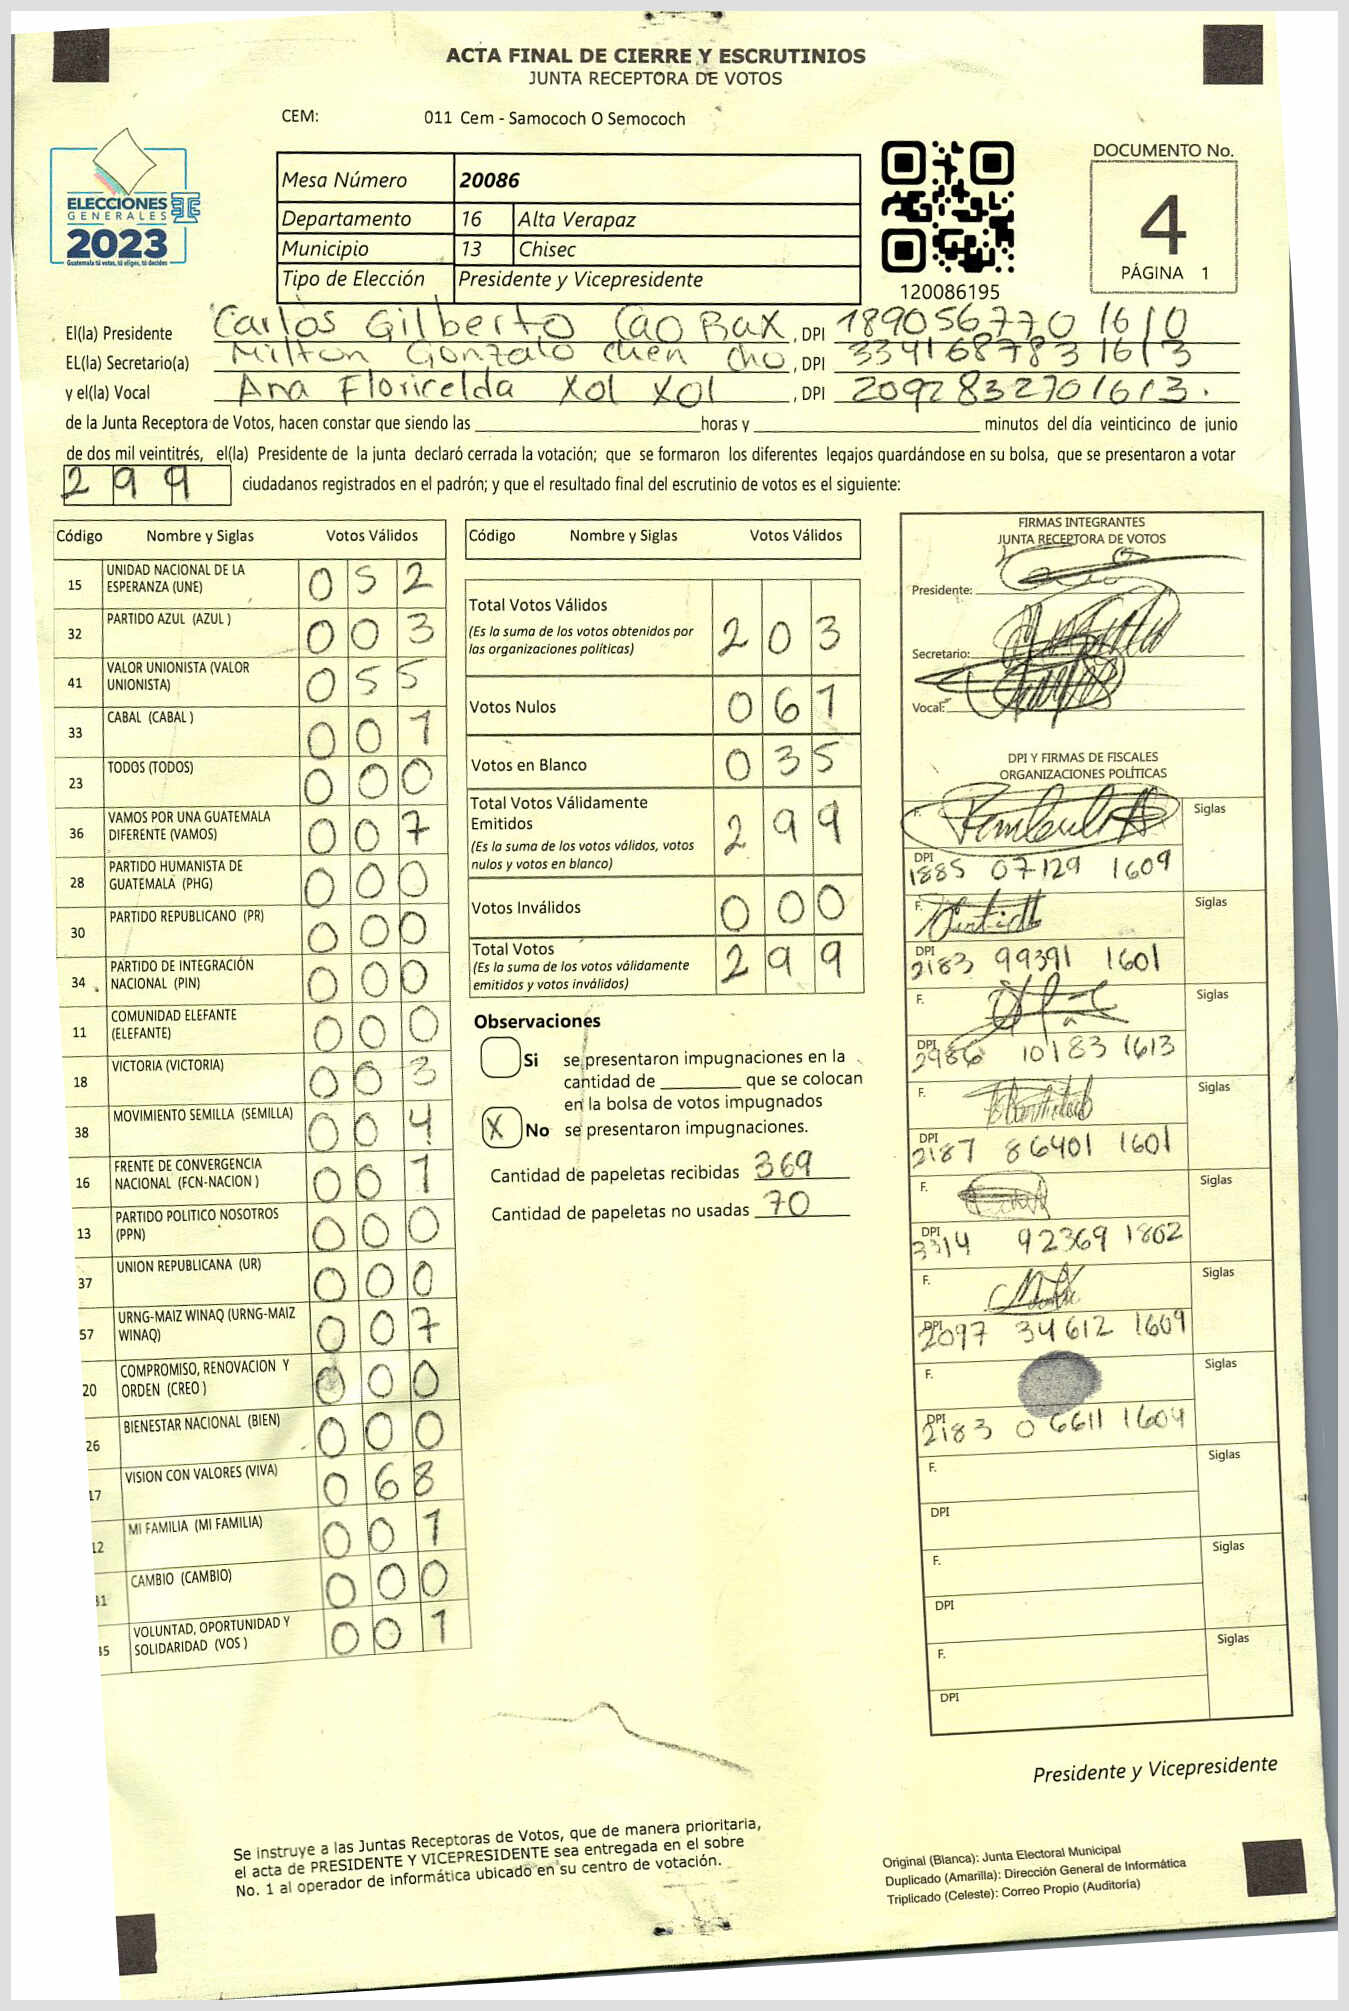 ACTA FINAL DE CIERRE Y ESCRUTINIOS
JUNTA RECEPTORA DE VOTOS
CEM: 011 Cem - Samococh O Semococh
ELECCIONES
GENERALES
2023
Guatemala tú votas, tú eliges, tú decides
Mesa Número 20086
Departamento 16 Alta Verapaz
Municipio 13 Chisec
Tipo de Elección Presidente y Vicepresidente
120086195
DOCUMENTO No.
4
PÁGINA 1
El(la) Presidente Carlos Gilberto Cao Bax, DPI 189056770 1610
EL(la) Secretario(a) Milton Gonzalo chen cho, DPI 334168783 1613
y el(la) Vocal Ana Floricelda Xol Xol, DPI 2092832701613.
de la Junta Receptora de Votos, hacen constar que siendo las ____ horas y ____ minutos del día veinticinco de junio
de dos mil veintitrés, el(la) Presidente de la junta declaró cerrada la votación; que se formaron los diferentes legajos guardándose en su bolsa, que se presentaron a votar
299 ciudadanos registrados en el padrón; y que el resultado final del escrutinio de votos es el siguiente:
Código Nombre y Siglas Votos Válidos
15 UNIDAD NACIONAL DE LA
ESPERANZA (UNE) 052
32 PARTIDO AZUL (AZUL ) 003
41 VALOR UNIONISTA (VALOR
UNIONISTA) 055
33 CABAL (CABAL ) 001
23 TODOS (TODOS) 000
36 VAMOS POR UNA GUATEMALA
DIFERENTE (VAMOS) 007
28 PARTIDO HUMANISTA DE
GUATEMALA (PHG) 000
30 PARTIDO REPUBLICANO (PR) 000
34 PARTIDO DE INTEGRACIÓN
NACIONAL (PIN) 000
11 COMUNIDAD ELEFANTE
(ELEFANTE) 000
18 VICTORIA (VICTORIA) 003
38 MOVIMIENTO SEMILLA (SEMILLA) 004
16 FRENTE DE CONVERGENCIA
NACIONAL (FCN-NACION ) 001
13 PARTIDO POLITICO NOSOTROS
(PPN) 000
37 UNION REPUBLICANA (UR) 000
57 URNG-MAIZ WINAQ (URNG-MAIZ
WINAQ) 007
20 COMPROMISO, RENOVACION Y
ORDEN (CREO ) 000
26 BIENESTAR NACIONAL (BIEN) 000
17 VISION CON VALORES (VIVA) 068
12 MI FAMILIA (MI FAMILIA) 001
31 CAMBIO (CAMBIO) 000
45 VOLUNTAD, OPORTUNIDAD Y
SOLIDARIDAD (VOS ) 001
Código Nombre y Siglas Votos Válidos
Total Votos Válidos 203
(Es la suma de los votos obtenidos por
las organizaciones políticas)
Votos Nulos 061
Votos en Blanco 035
Total Votos Válidamente
Emitidos 299
(Es la suma de los votos válidos, votos
nulos y votos en blanco)
Votos Inválidos 000
Total Votos 299
(Es la suma de los votos válidamente
emitidos y votos inválidos)
Observaciones
Si se presentaron impugnaciones en la
cantidad de ____ que se colocan
en la bolsa de votos impugnados
X No se presentaron impugnaciones.
Cantidad de papeletas recibidas 369
Cantidad de papeletas no usadas 70
FIRMAS INTEGRANTES
JUNTA RECEPTORA DE VOTOS
Presidente:
Secretario:
Vocal:
DPI Y FIRMAS DE FISCALES
ORGANIZACIONES POLÍTICAS
F. Siglas
DPI
1885 07129 1609
F. Siglas
DPI
2183 99391 1601
F. Siglas
DPI
2986 10183 1613
F. Siglas
DPI
2187 86401 1601
F. Siglas
DPI
3314 92369 1802
F. Siglas
DPI
2097 34612 1609
F. Siglas
DPI
2183 06611 1604
F. Siglas
DPI
F. Siglas
DPI
F. Siglas
DPI
Presidente y Vicepresidente
Se instruye a las Juntas Receptoras de Votos, que de manera prioritaria,
el acta de PRESIDENTE Y VICEPRESIDENTE sea entregada en el sobre
No. 1 al operador de informática ubicado en su centro de votación.
Original (Blanca): Junta Electoral Municipal
Duplicado (Amarilla): Dirección General de Informática
Triplicado (Celeste): Correo Propio (Auditoría)